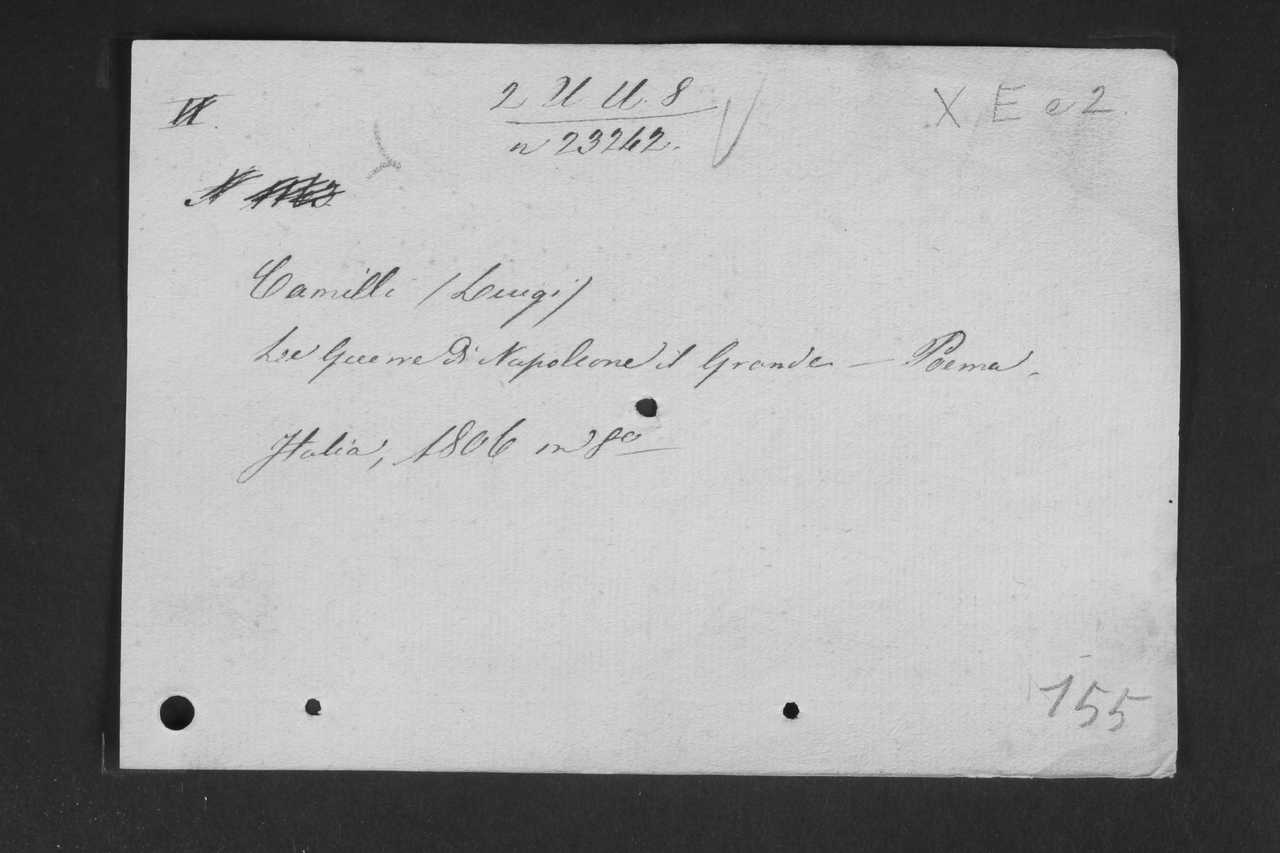 2 U U. 8
X E e 2.
n 23242.
N
Camilli (Luigi)
Le Guerre di Napoleone il Grande — Poema.
Italia, 1806 in 8º
155